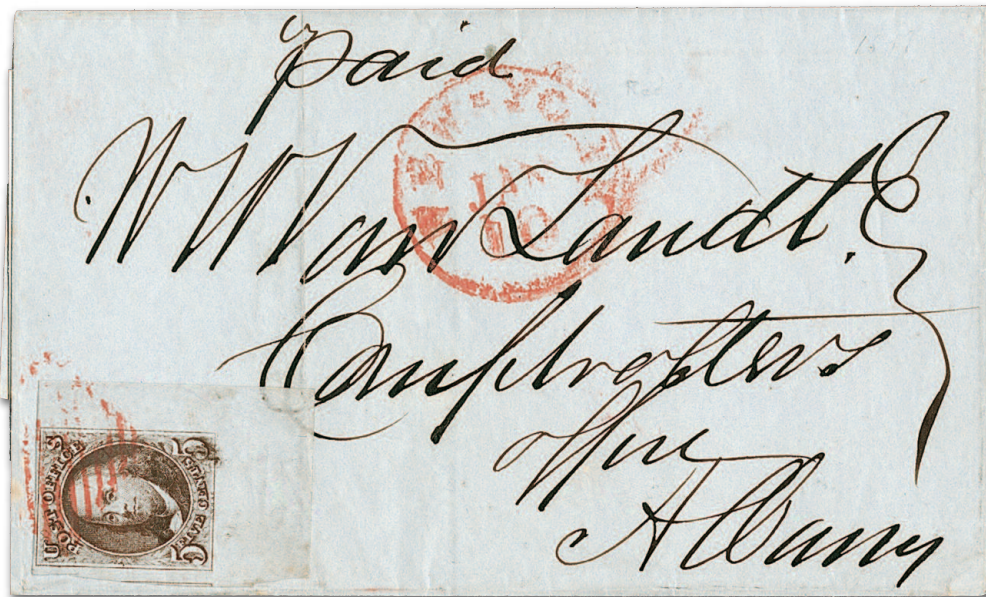 Paid
NEW-YORK
JAN
10
W W Van Zandt.
Comptrollers
office
Albany
POST OFFICE
FIVE CENTS
U S
5 5